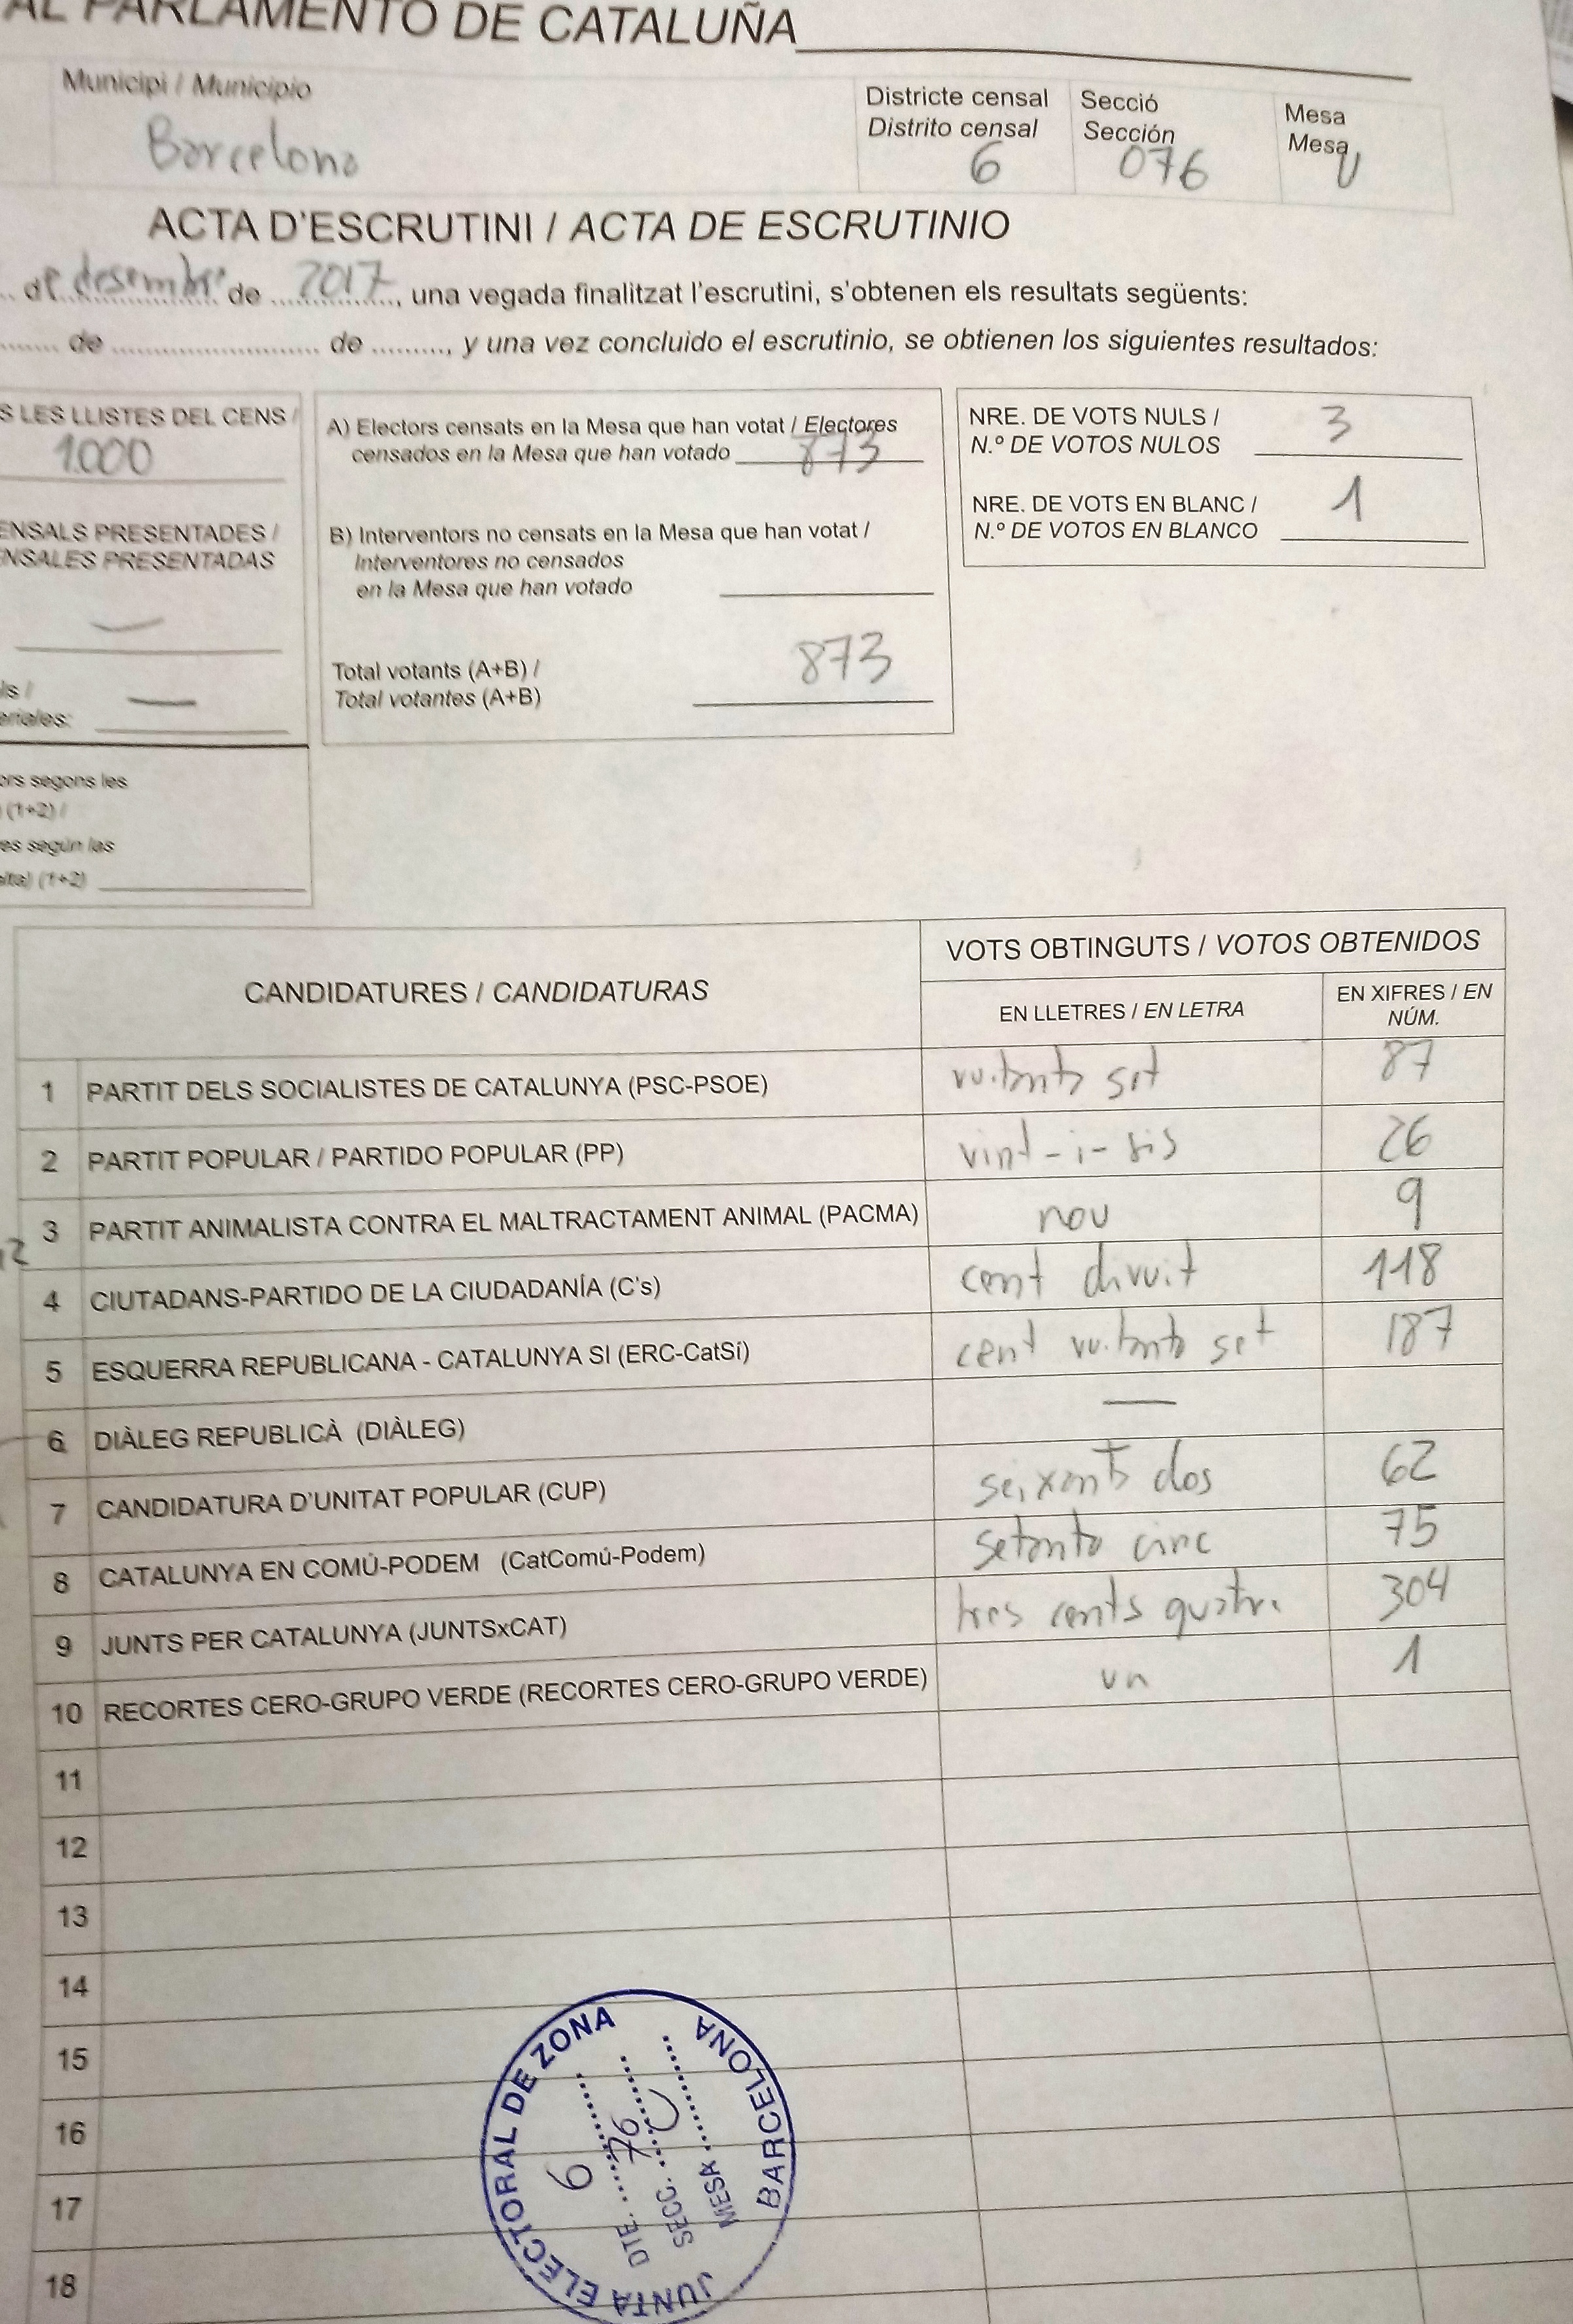 AL PARLAMENTO DE CATALUÑA
Municipi / Municipio
Barcelona
Districte censal
Distrito censal
6
Secció
Sección
076
Mesa
Mesa
U
ACTA D'ESCRUTINI / ACTA DE ESCRUTINIO
de desembre de 2017, una vegada finalitzat l'escrutini, s'obtenen els resultats següents:
de de , y una vez concluido el escrutinio, se obtienen los siguientes resultados:
S LES LLISTES DEL CENS /
1.000
ENSALS PRESENTADES /
ENSALES PRESENTADAS
—
ls /
eriales: —
ors segons les
(1+2) /
es según las
alta) (1+2)
A) Electors censats en la Mesa que han votat / Electores
censados en la Mesa que han votado 873
B) Interventors no censats en la Mesa que han votat /
Interventores no censados
en la Mesa que han votado
Total votants (A+B) /
Total votantes (A+B)
873
NRE. DE VOTS NULS /
N.º DE VOTOS NULOS
3
NRE. DE VOTS EN BLANC /
N.º DE VOTOS EN BLANCO
1
CANDIDATURES / CANDIDATURAS
VOTS OBTINGUTS / VOTOS OBTENIDOS
EN LLETRES / EN LETRA
EN XIFRES / EN
NÚM.
1 PARTIT DELS SOCIALISTES DE CATALUNYA (PSC-PSOE) vuitanta set 87
2 PARTIT POPULAR / PARTIDO POPULAR (PP) vint-i-sis 26
3 PARTIT ANIMALISTA CONTRA EL MALTRACTAMENT ANIMAL (PACMA) nou 9
4 CIUTADANS-PARTIDO DE LA CIUDADANÍA (C's) cent divuit 118
5 ESQUERRA REPUBLICANA - CATALUNYA SI (ERC-CatSí) cent vuitanta set 187
6 DIÀLEG REPUBLICÀ (DIÀLEG) —
7 CANDIDATURA D'UNITAT POPULAR (CUP) seixanta dos 62
8 CATALUNYA EN COMÚ-PODEM (CatComú-Podem) setanta cinc 75
9 JUNTS PER CATALUNYA (JUNTSxCAT) tres cents quatre 304
10 RECORTES CERO-GRUPO VERDE (RECORTES CERO-GRUPO VERDE) un 1
11
12
13
14
15
16
17
18
JUNTA ELECTORAL DE ZONA
BARCELONA
DTE. 6
SECC. 76
MESA U